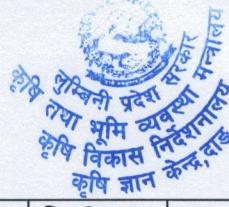 लुम्बिनी प्रदेश सरकार
कृषि तथा भूमि व्यवस्था मन्त्रालय
कृषि विकास निर्देशनालय
कृषि ज्ञान केन्द्र, दाङ